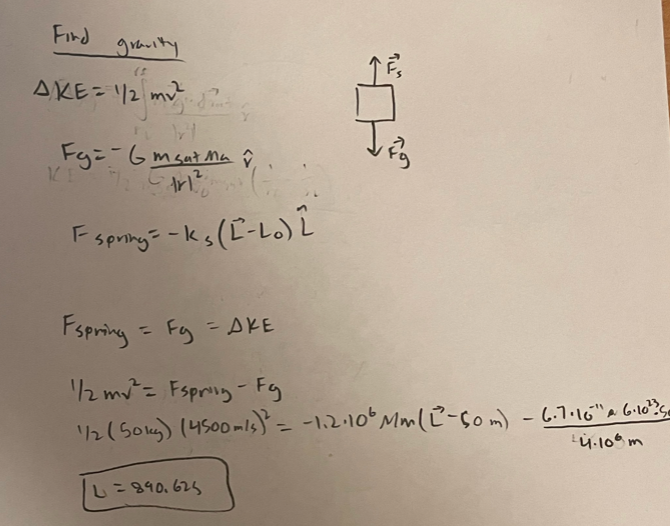 Find gravity
ΔKE = 1/2 mv²
F⃗s
Fg = -G msat Ma / |r|² r̂
F⃗g
Fspring = -ks(L⃗-L₀) L̂
Fspring = Fg = ΔKE
1/2 mv² = Fspring - Fg
1/2 (50kg) (4500m/s)² = -1.2·10⁶ Mm(L⃗-50m) - 6.7·10⁻¹¹ · 6·10²³·50 / 4·10⁶ m
L = 890.625